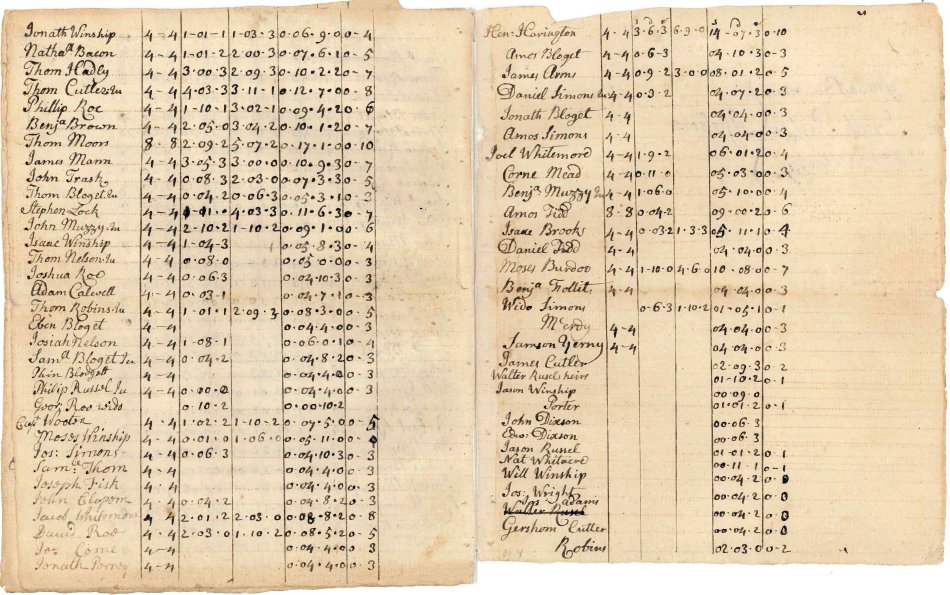 Jonath Winship 4-4 1-01-1 1-03-3 0-06-9 0-4
Nathall Bacon 4-4 1-01-2 2-00-3 0-07-6-1 0-5
Thom Hadly 4-4 3-00-3 2-09-3 0-10-2-2 0-7
Thom Cutler Ju 4-4 4-03-3 3-11-1 0-12-7-0 0-8
Phillip Roe 4-4 1-10-1 3-02-1 0-09-4-2 0-6
Benja Brown 4-4 2-05-0 3-04-2 0-10-1-2 0-7
Thom Moors 8-8 2-09-2 5-07-2 0-17-1-0 0-10
James Mann 4-4 3-05-3 3-00-0 0-10-9-3 0-7
John Trash 4-4 0-08-3 2-03-0 0-07-3-3 0-5
Thom Bloget Ju 4-4 0-04-2 0-06-3 0-05-3-1 0-3
Stephen Lock 4-4 4-03-3 0-11-6-3 0-7
John Muzzy Ju 4-4 2-10-2 1-10-2 0-09-1-0 0-6
Isaac Winship 4-4 1-04-3 0-05-8-3 0-4
Thom Nelson Ju 4-4 0-08-0 0-05-0-0 0-3
Joshua Roe 4-4 0-06-3 0-04-10-3 0-3
Adam Calwell 4-4 0-03-1 0-04-7-1 0-3
Thom Robins Ju 4-4 1-01-1 2-09-3 0-08-3-0 0-5
Eben Bloget 4-4 0-04-4-0 0-3
Josiah Nelson 4-4 1-08-1 0-06-0-1 0-4
Samll Bloget Ju 4-4 0-04-2 0-04-8-2 0-3
Blodgett 4-4 0-04-4-0 0-3
Philip Russel Ju 4-4 0-04-4-0 0-3
Roe wids 0-10-2 0-00-10-2
Capt Wooten 4-4 1-02-2 1-10-2 0-07-5-0 0-5
Moses Winship 4-4 0-01-0 1-06-0 0-05-11-0
Jos: Simons 4-4 0-06-3 0-04-10-3 0-3
Samll Thorn 4-4 0-04-4-0 0-3
Joseph Fish 4-4 0-04-4-0 0-3
John Clapom 4-4 0-04-2 0-04-8-2 0-3
Jacob Whitemore 4-4 2-01-2 2-03-0 0-08-8-2 0-8
David Roe 4-4 2-03-0 1-10-2 0-08-5-2 0-5
Jos Come 4-4 0-04-4-0 0-3
Jonath Perrey 4-4 0-04-4-0 0-3
s d q
Hen: Harington 4-4 3-6-3 6-9-0 14-07-3 0-10
Amos Bloget 4-4 0-6-3 04-10-3 0-3
James Arms 4-4 0-9-2 3-0-0 08-01-2 0-5
Daniel Simons Ju 4-4 0-3-2 04-07-2 0-3
Jonath Bloget 4-4 04-04-0 0-3
Amos Simons 4-4 04-04-0 0-3
Joel Whitemore 4-4 1-9-2 06-01-2 0-4
Corne Mead 4-4 0-11-0 05-03-0 0-3
Benja Muzzy Ju 4-4 1-06-0 05-10-0 0-4
Amos Tidd 8-8 0-04-2 09-00-2 0-6
Isaac Brooks 4-4 0-03-2 1-3-3 05-11-1 0-4
Daniel Tidd 4-4 04-04-0 0-3
Moses Burdoo 4-4 1-10-0 4-6-0 10-08-0 0-7
Benja Follit 4-4 04-04-0 0-3
Wido Simons 0-6-3 1-10-2 01-05-1 0-1
4-4 04-04-0 0-3
Samson Yerny 4-4 04-04-0 0-3
James Cutler 02-09-3 0-2
Walter Rusels heirs 01-10-2 0-1
Jason Winship 00-09-0
Porter 01-01-2 0-1
John Dixson 00-06-3
Edw: Dixson 00-06-3
Jason Russel 01-01-2 0-1
Nat Whitacre 00-11-1 0-1
Will Winship 00-04-2 0-0
Jos: Wright 00-04-2 0-0
Jos Adams
Walter Rusel 00-04-2 0-0
Gershom Cutter 00-04-2 0-0
Robins 02-03-0 0-2